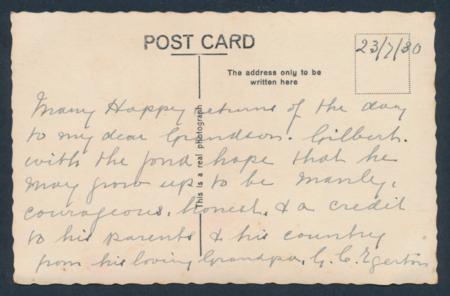 POST CARD
23/7/30
The address only to be
written here
This is a real photograph
Many Happy returns of the day
to my dear Grandson. Gilbert.
with the fond hope that he
may grow up to be manly,
courageous, honest, & a credit
to his parents & his country
from his loving Grandpa, G. C. Egerton